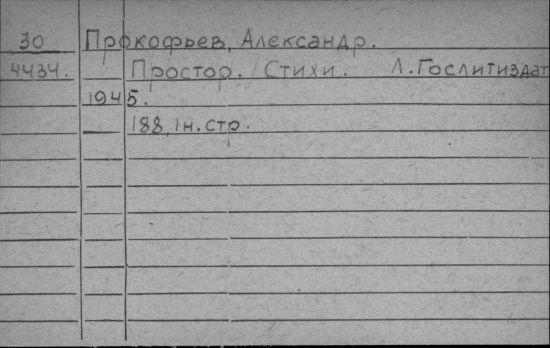 30 Прокофьев, Александр.
4434. Простор. Стихи. Л. Гослитиздат
1945.
188, 1н. стр.